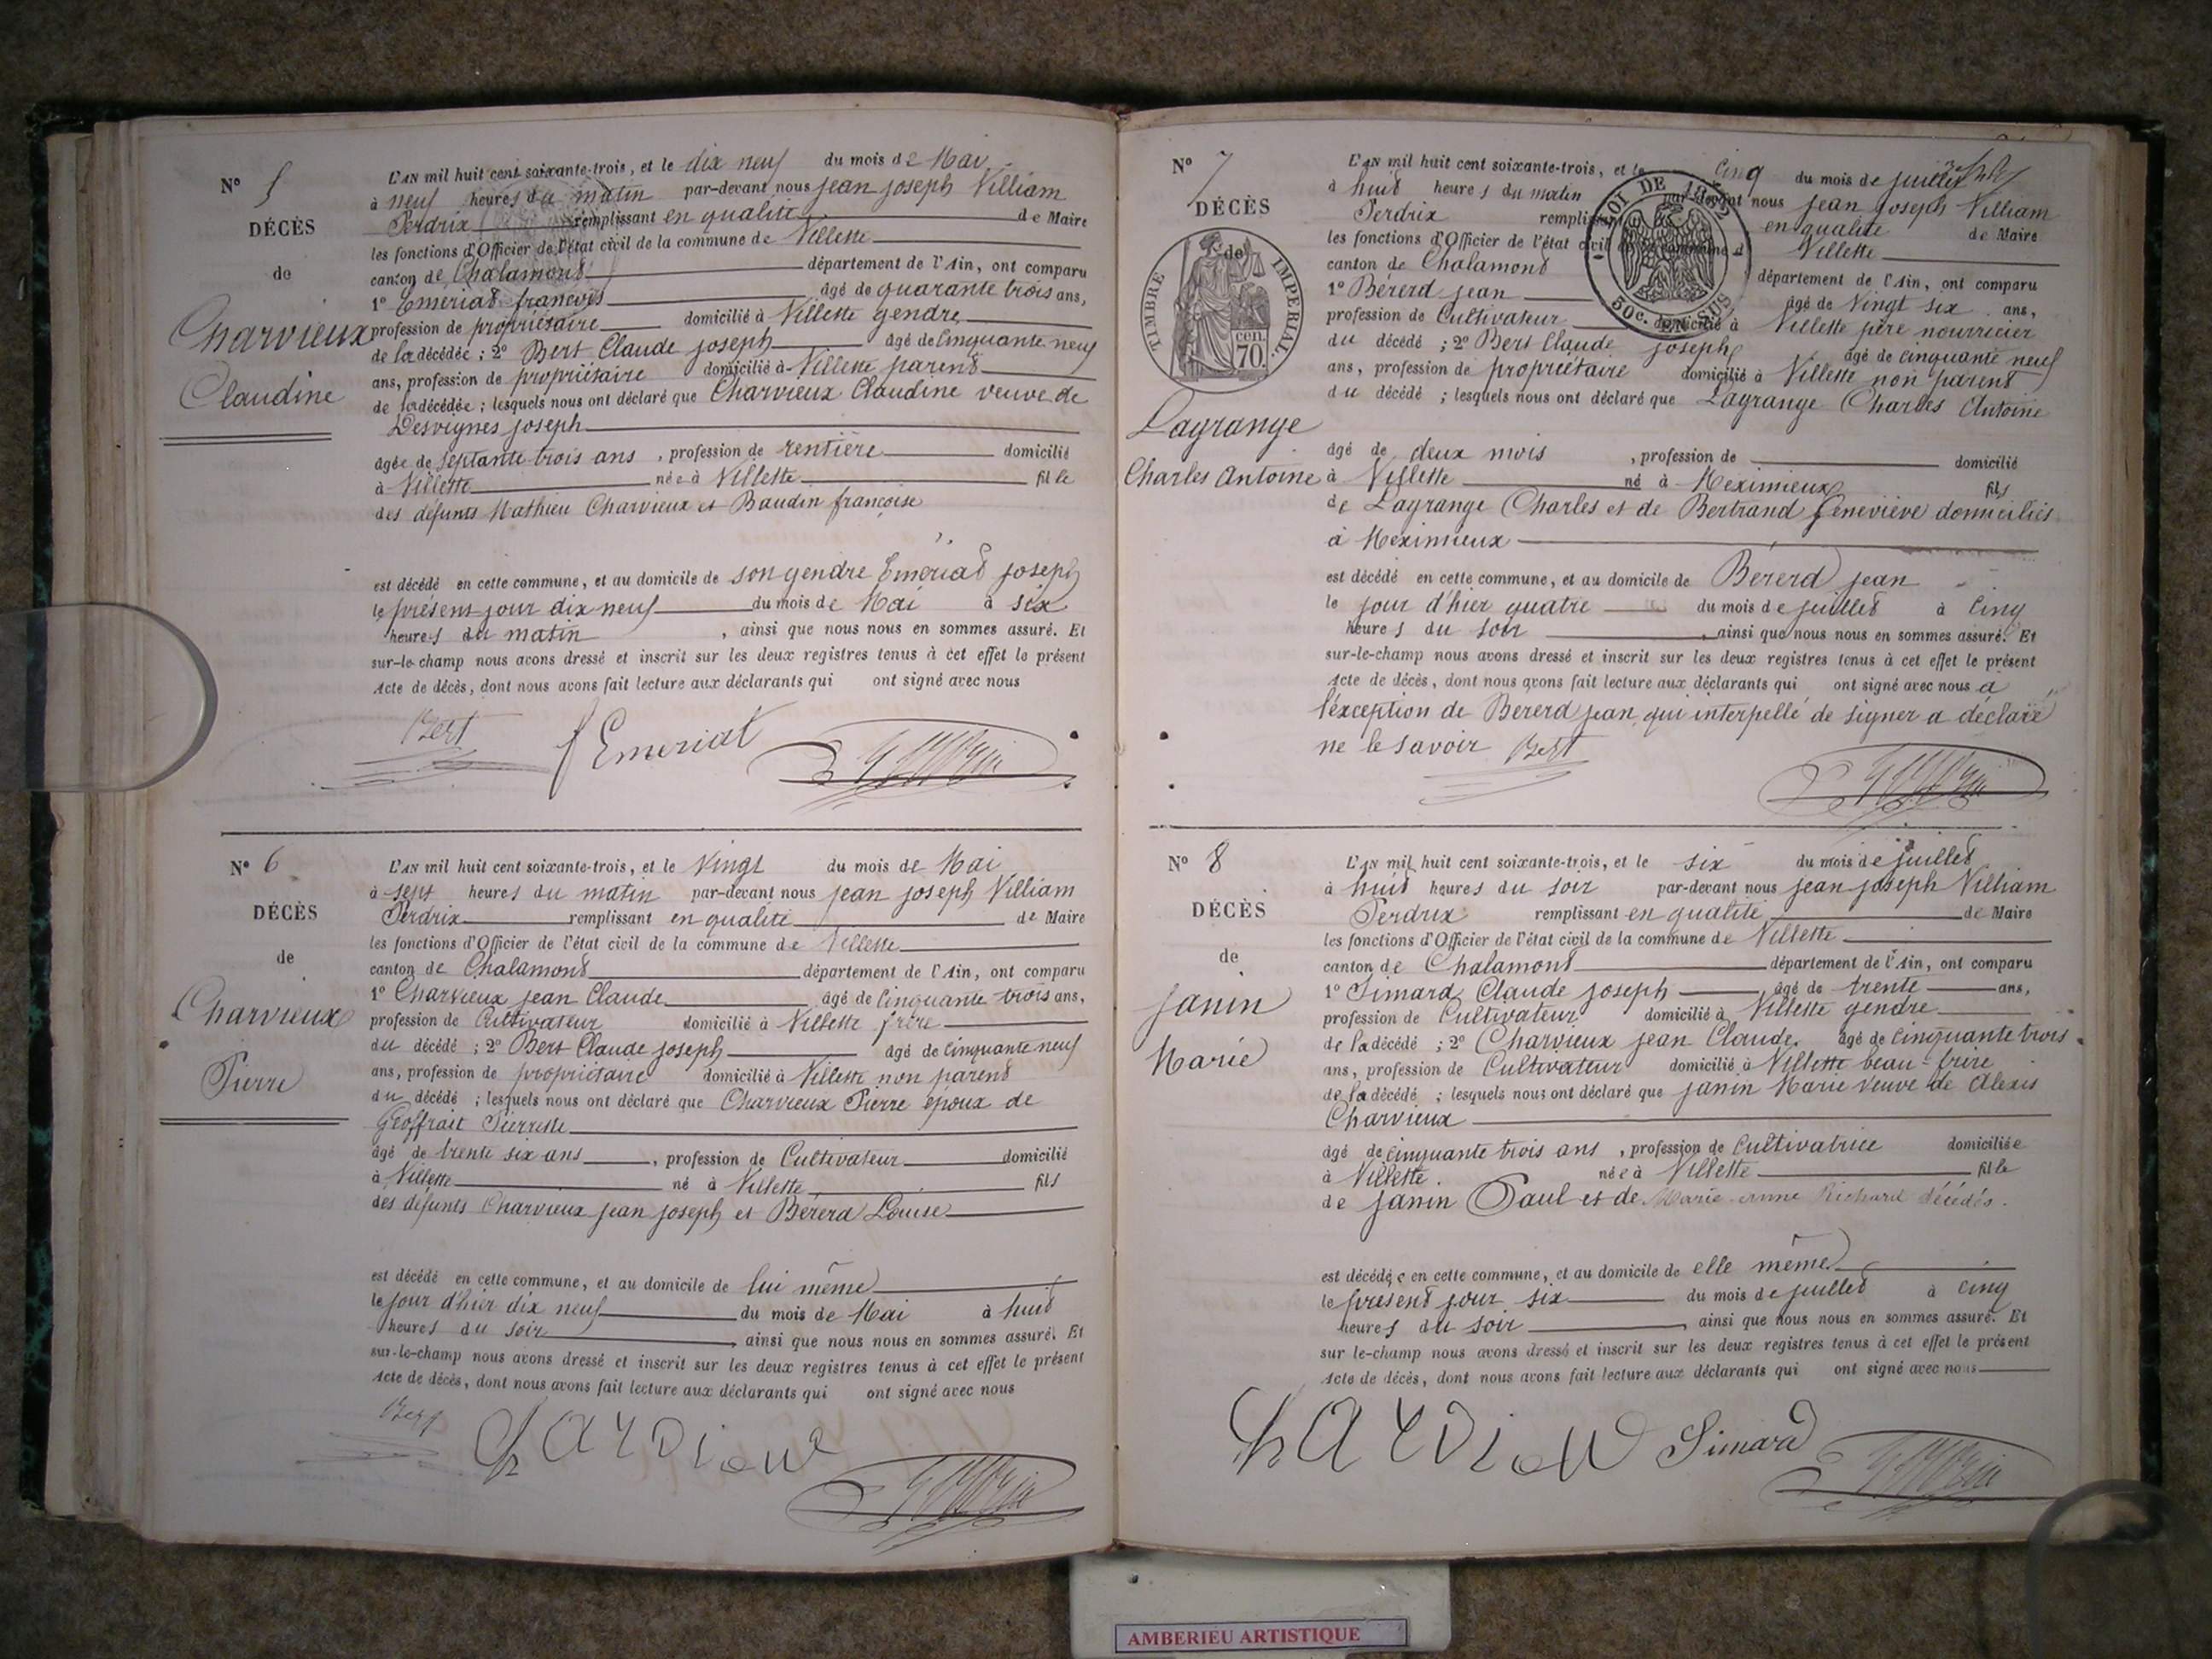 N° 5
DÉCÈS
de
Charvieux
Claudine
L'AN mil huit cent soixante-trois, et le dix neuf du mois de Mai
à neuf heures du matin par-devant nous jean joseph Villiam
Perdrix remplissant en qualité de Maire
les fonctions d'Officier de l'état civil de la commune de Villette
canton de Chalamont département de l'Ain, ont comparu
1° Emeriat françois âgé de quarante trois ans,
profession de propriétaire domicilié à Villette gendre
de la décédée ; 2° Bert Claude joseph âgé de cinquante neuf
ans, profession de propriétaire domicilié à Villette parent
de la décédée ; lesquels nous ont déclaré que Charvieux Claudine veuve de
Desvignes joseph
âgée de septante trois ans , profession de rentière domicilié
à Villette née à Villette fille
des défunts Mathieu Charvieux et Baudin françoise
est décédé en cette commune, et au domicile de son gendre Emeriat joseph
le présent jour dix neuf du mois de Mai à six
heures du matin , ainsi que nous nous en sommes assuré. Et
sur-le-champ nous avons dressé et inscrit sur les deux registres tenus à cet effet le présent
Acte de décès, dont nous avons fait lecture aux déclarants qui ont signé avec nous
Bert f Emeriat
N° 6
DÉCÈS
de
Charvieux
Pierre
L'AN mil huit cent soixante-trois, et le Vingt du mois de Mai
à sept heures du matin par-devant nous jean joseph Villiam
Perdrix remplissant en qualité de Maire
les fonctions d'Officier de l'état civil de la commune de Villette
canton de Chalamont département de l'Ain, ont comparu
1° Charvieux jean Claude âgé de cinquante trois ans,
profession de Cultivateur domicilié à Villette frère
du décédé ; 2° Bert Claude joseph âgé de cinquante neuf
ans, profession de propriétaire domicilié à Villette non parent
du décédé ; lesquels nous ont déclaré que Charvieux Pierre époux de
Geoffrait Pierrette
âgé de trente six ans , profession de Cultivateur domicilié
à Villette né à Villette fils
des défunts Charvieux jean joseph et Bererd Louise
est décédé en cette commune, et au domicile de lui même
le jour d'hier dix neuf du mois de Mai à huit
heures du soir ainsi que nous nous en sommes assuré. Et
sur-le-champ nous avons dressé et inscrit sur les deux registres tenus à cet effet le présent
Acte de décès, dont nous avons fait lecture aux déclarants qui ont signé avec nous
Bert
N° 7
DÉCÈS
de
TIMBRE IMPÉRIAL
70 cen.
Lagrange
Charles Antoine
LOI DE 1862
50c. EN SUS
L'AN mil huit cent soixante-trois, et le cinq du mois de juillet
à huit heures du matin par-devant nous jean joseph Villiam
Perdrix remplissant en qualité de Maire
les fonctions d'Officier de l'état civil de la commune de Villette
canton de Chalamont département de l'Ain, ont comparu
1° Bérerd jean âgé de Vingt six ans,
profession de Cultivateur domicilié à Villette père nourricier
du décédé ; 2° Bert Claude joseph âgé de cinquante neuf
ans, profession de propriétaire domicilié à Villette non parent
du décédé ; lesquels nous ont déclaré que Lagrange Charles Antoine
âgé de deux mois , profession de domicilié
à Villette né à Meximieux fils
de Lagrange Charles et de Bertrand Geneviève domiciliés
à Meximieux
est décédé en cette commune, et au domicile de Bérerd jean
le jour d'hier quatre du mois de juillet à cinq
heures du soir , ainsi que nous nous en sommes assuré. Et
sur-le-champ nous avons dressé et inscrit sur les deux registres tenus à cet effet le présent
Acte de décès, dont nous avons fait lecture aux déclarants qui ont signé avec nous à
l'exception de Bererd jean qui interpellé de signer a déclaré
ne le savoir Bert
N° 8
DÉCÈS
de
janin
Marie
L'AN mil huit cent soixante-trois, et le six du mois de juillet
à huit heures du soir par-devant nous jean joseph Villiam
Perdrix remplissant en qualité de Maire
les fonctions d'Officier de l'état civil de la commune de Villette
canton de Chalamont département de l'Ain, ont comparu
1° Simard Claude joseph âgé de trente ans,
profession de Cultivateur domicilié à Villette gendre
de la décédé ; 2° Charvieux jean Claude âgé de cinquante trois
ans, profession de Cultivateur domicilié à Villette beau-frère
de la décédé ; lesquels nous ont déclaré que janin Marie veuve de Alexis
Charvieux
âgé de cinquante trois ans , profession de Cultivatrice domiciliée
à Villette née à Villette fille
de janin Paul et de Marie anne Richard décédés.
est décédée en cette commune, et au domicile de elle même
le présent jour six du mois de juillet à cinq
heures du soir , ainsi que nous nous en sommes assuré. Et
sur le-champ nous avons dressé et inscrit sur les deux registres tenus à cet effet le présent
Acte de décès, dont nous avons fait lecture aux déclarants qui ont signé avec nous
Simard
AMBERIEU ARTISTIQUE